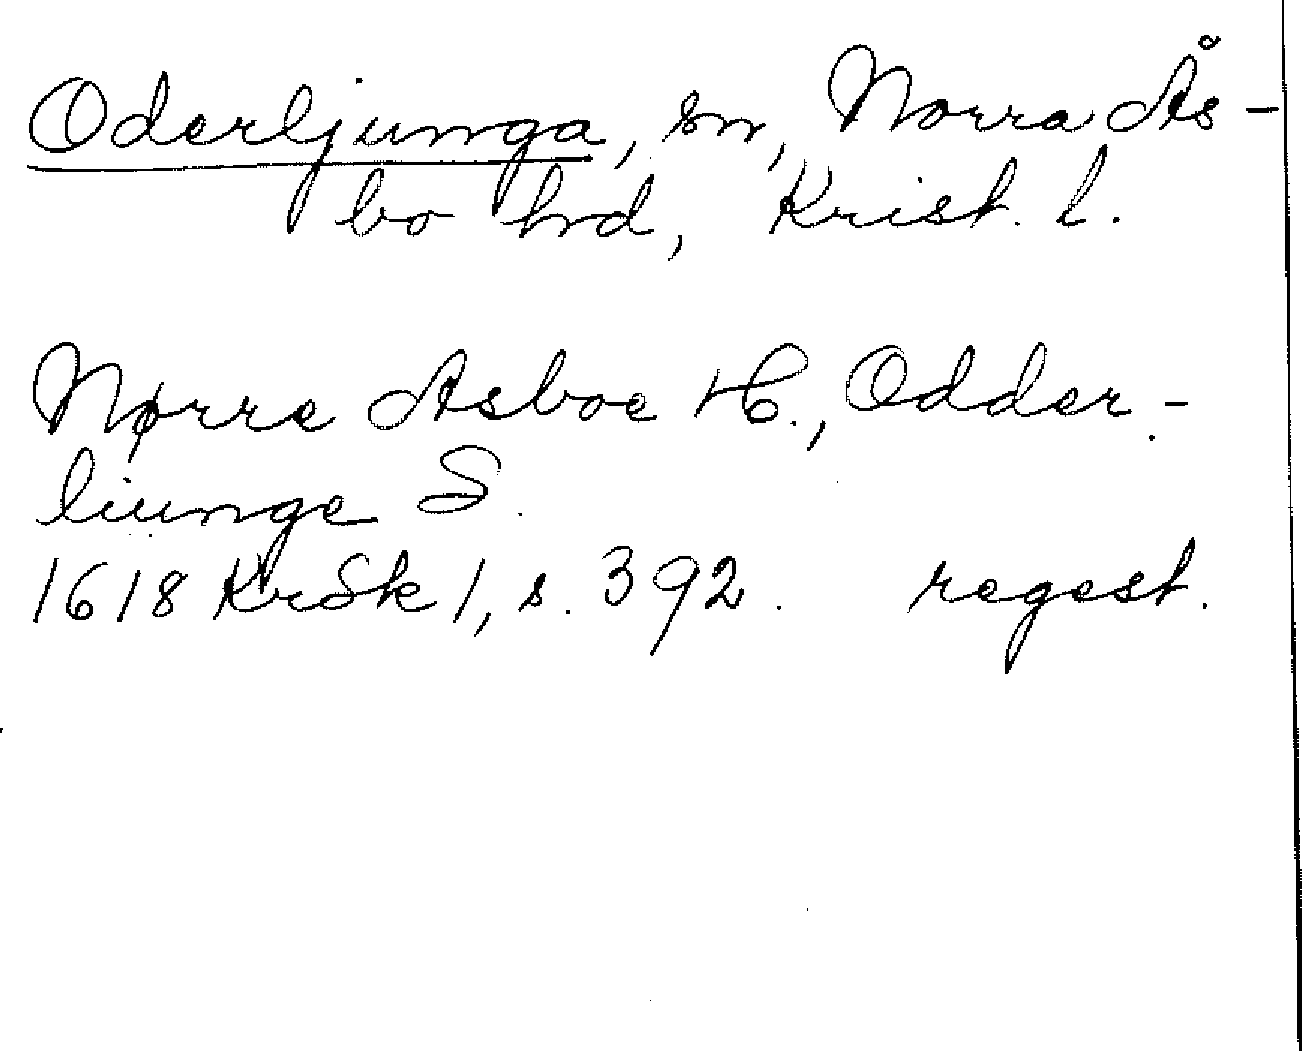 Oderljunga, sn, Norra Ås-
bo hrd, Krist. l.
Nørre Asboe H., Odder-
liunge S.
1618 KrSk 1, s. 392. regest.